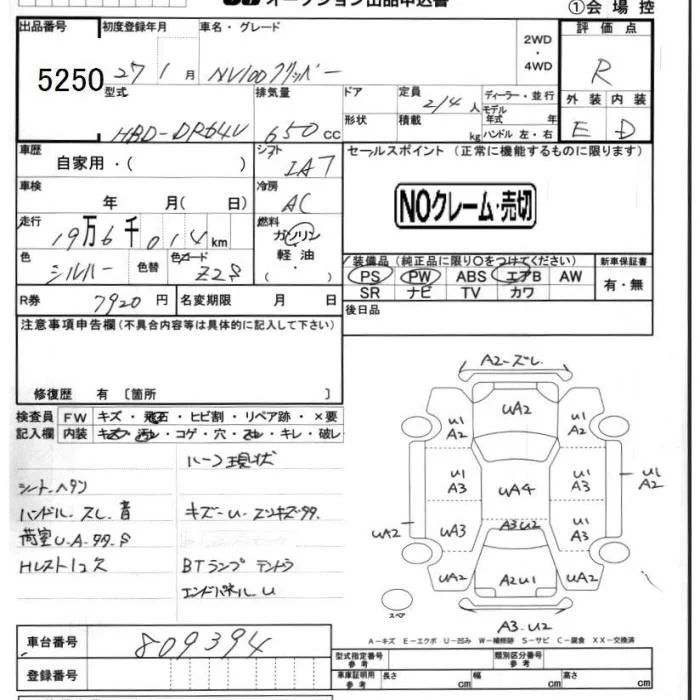 オークション出品申込書
①会場控
出品番号 初度登録年月 車名・グレード 2WD・4WD 評価点
5250 27 1月 NV100クリッパー R
型式 排気量 ドア 定員 ディーラー・並行 外装 内装
HBD-DR64V 650cc 2/4人 モデル年式 年 E D
形状 積載 kg ハンドル 左・右
車歴 シフト セールスポイント (正常に機能するものに限ります)
自家用・( ) IA7
車検 冷房
年 月( 日) AC NOクレーム・売切
走行 燃料
19万6千014km ガソリン
軽油・( )
色 色替 色コード 装備品 (純正品に限り○をつけてください) 新車保証書
シルバー Z2S PS PW ABS エアB AW 有・無
R券 7920円 名変期限 月 日 SR ナビ TV カワ
注意事項申告欄(不具合内容等は具体的に記入して下さい) 後日品
修復歴 有 〔箇所 〕
検査員 FW キズ・飛石・ヒビ割・リペア跡・×要
記入欄 内装 キズ・汚れ・コゲ・穴・スレ・キレ・破レ
現状
シートヘタリ
ハンドル.スレ.音 キズ-U-
荷室U-A-
Hレスト1コ欠 BTランプ
エンドパネル U
A2-ズレ
UA2
U1 A2 U1 A2
U1 A3 UA4 U1 A3 U1 A2
UA2 UA3 A3U2 U1 A3
UA2 A2U1 UA2
スペア
A3-U2
A-キズ E-エクボ U-凹み W-補修跡 S-サビ C-腐食 XX-交換済
車台番号 809394
型式指定番号 参考 類別区分番号 参考
登録番号 車庫証明用 参考 長さ cm 幅 cm 高さ cm